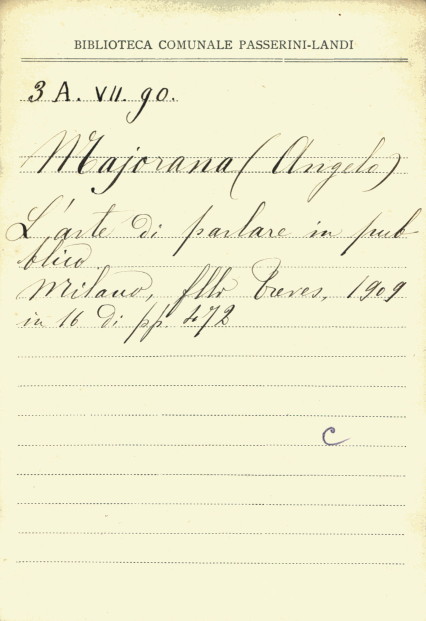 BIBLIOTECA COMUNALE PASSERINI-LANDI
3 A. VII. 90.
Majorana (Angelo)
L'arte di parlare in pub-
blico
Milano, flli Treves, 1909
in 16 di pp. 472
C